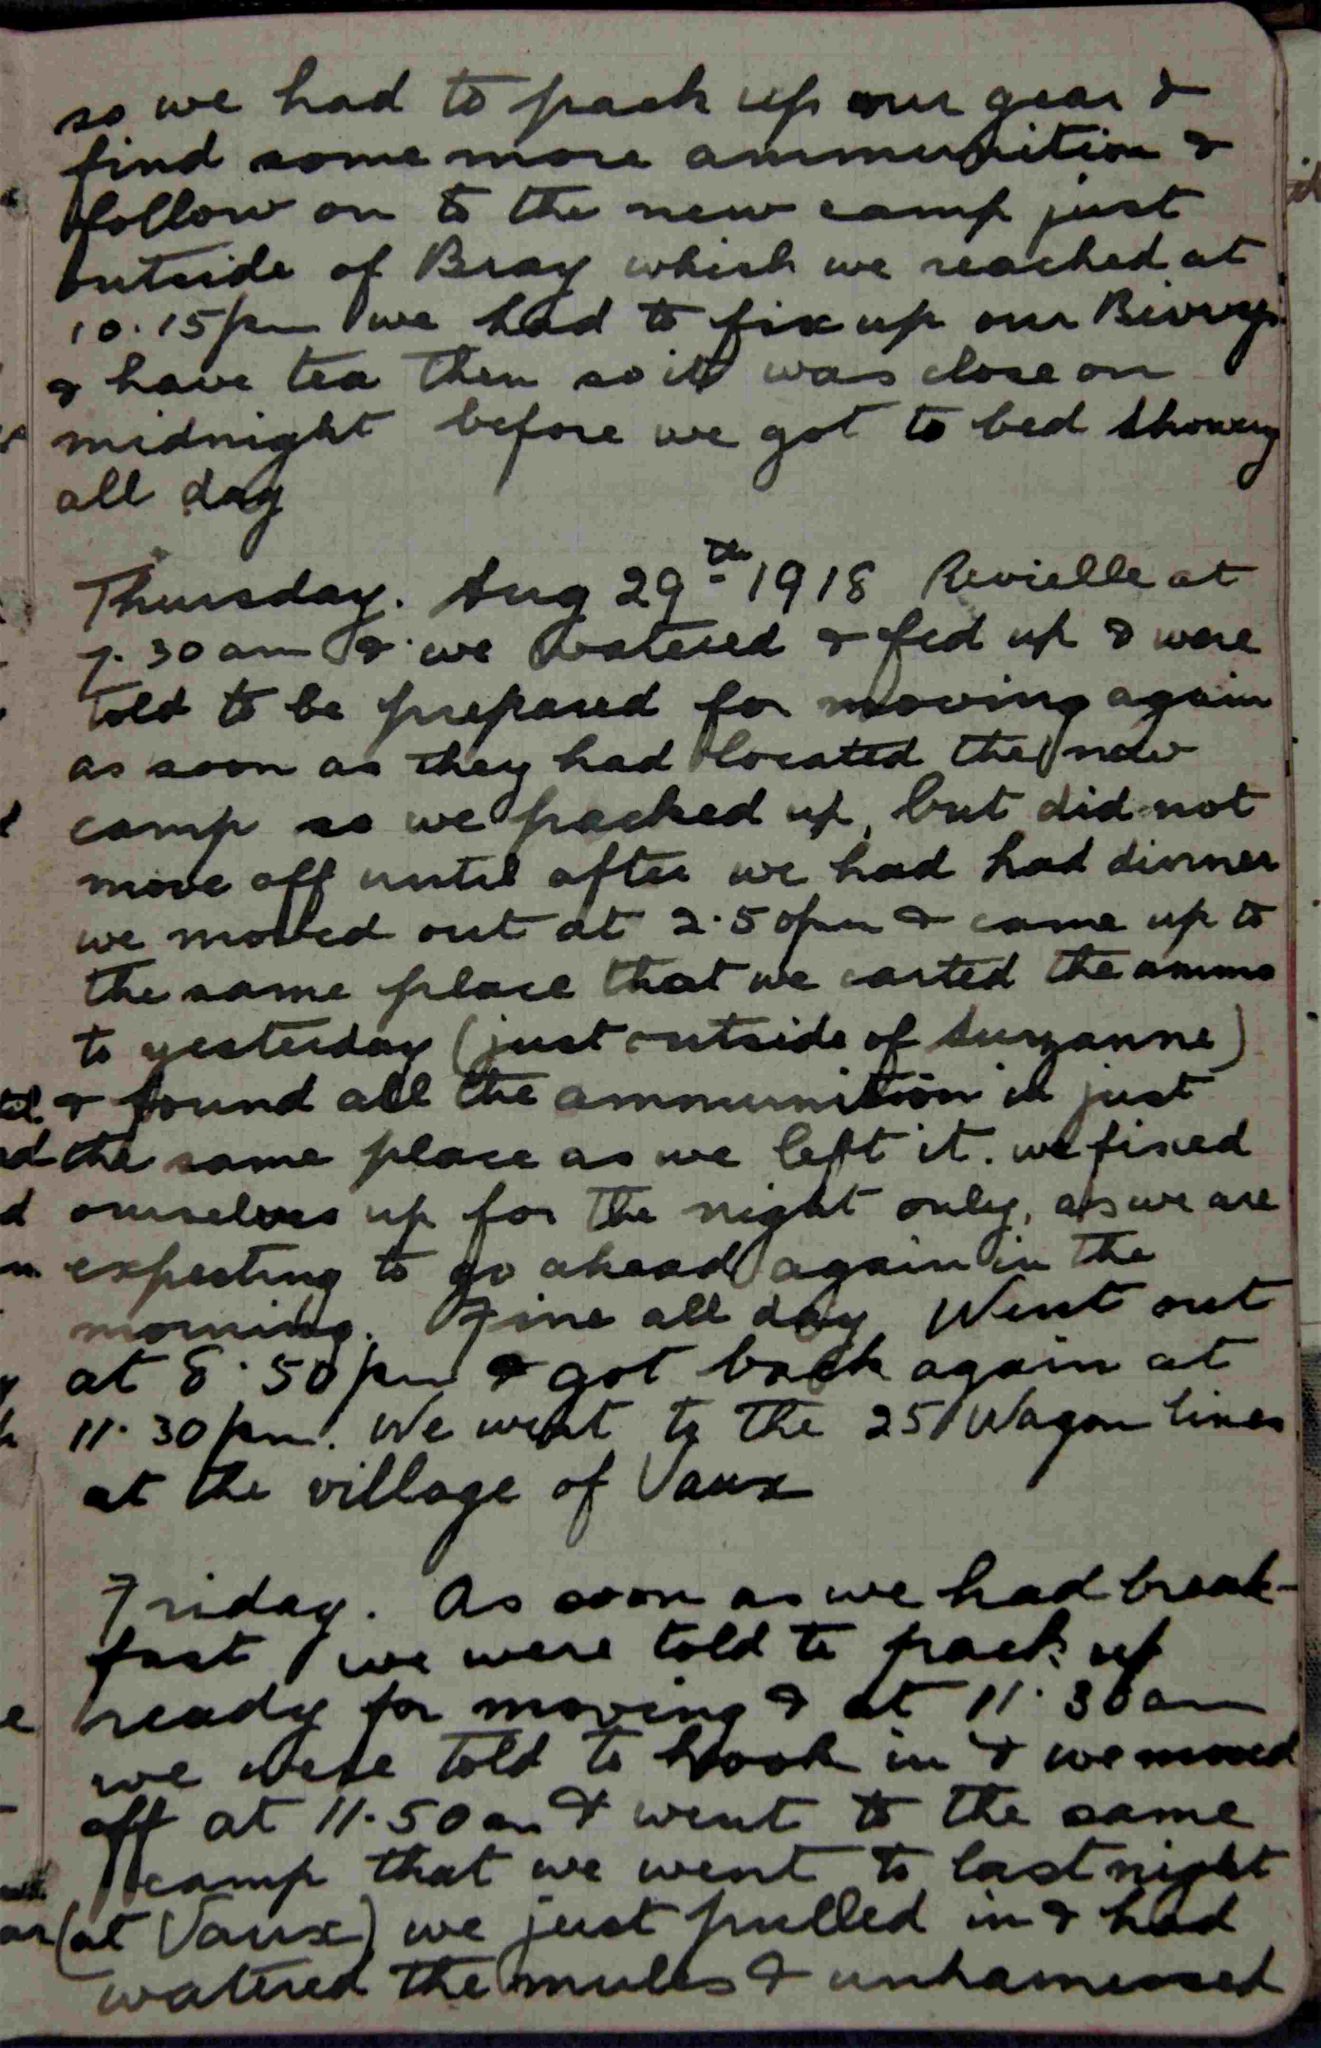 so we had to pack up our gear &
find some more ammunition &
follow on to the new camp just
outside of Bray which we reached at
10.15pm we had to fix up our Bivvys
& have tea then so it was close on
midnight before we got to bed Showery
all day
Thursday. Aug 29th 1918 Revielle at
7.30am & we watered & fed up & were
told to be prepared for moving again
as soon as they had located the new
camp so we packed up, but did not
move off until after we had had dinner
we moved out at 2.50pm & came up to
the same place that we carted the ammo
to yesterday (just outside of Suzanne)
& found all the ammunition in just
the same place as we left it. we fixed
ourselves up for the night only, as we are
expecting to go ahead again in the
morning. Fine all day. Went out
at 8.50pm & got back again at
11.30pm. We went to the 25 Wagon lines
at the village of Vaux
Friday. As soon as we had break-
fast we were told to pack up
ready for moving & at 11.30am
we were told to hook in & we moved
off at 11.50am & went to the same
camp that we went to last night
(at Vaux) we just pulled in & had
watered the mules & unharnessed